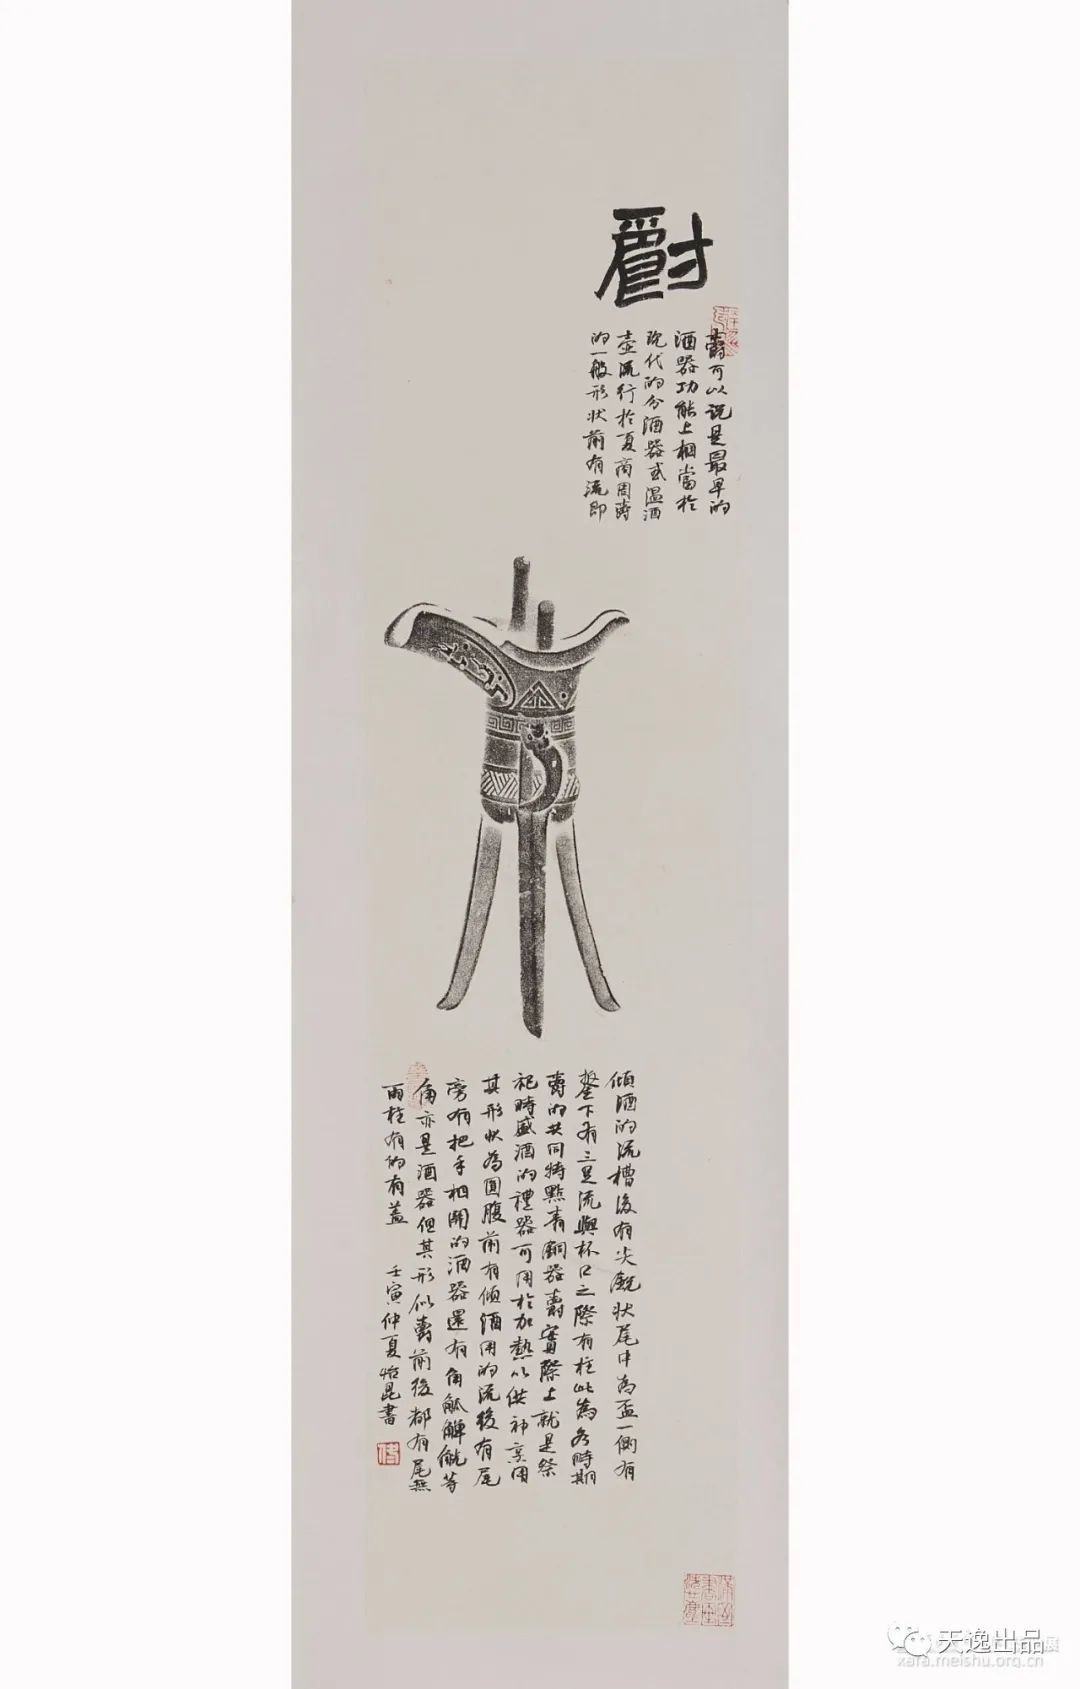 爵
爵可以说是最早的
酒器功能上相當於
現代的分酒器或温酒
壶流行於夏商周爵
的一般形状前有流即
傾酒的流槽後有尖銳状尾中為盃一侧有
鋬下有三足流與杯口之際有柱此為各時期
爵的共同特點青銅器爵實際上就是祭
祀時盛酒的禮器可用於加熱以供神享用
其形状為圓腹前有傾酒用的流後有尾
旁有把手相関的酒器還有角觚觶觥等
角亦是酒器但其形似爵前後都有尾無
兩柱有的有蓋
壬寅仲夏怡昆書
天逸出品
xafa.meishu.org.cn